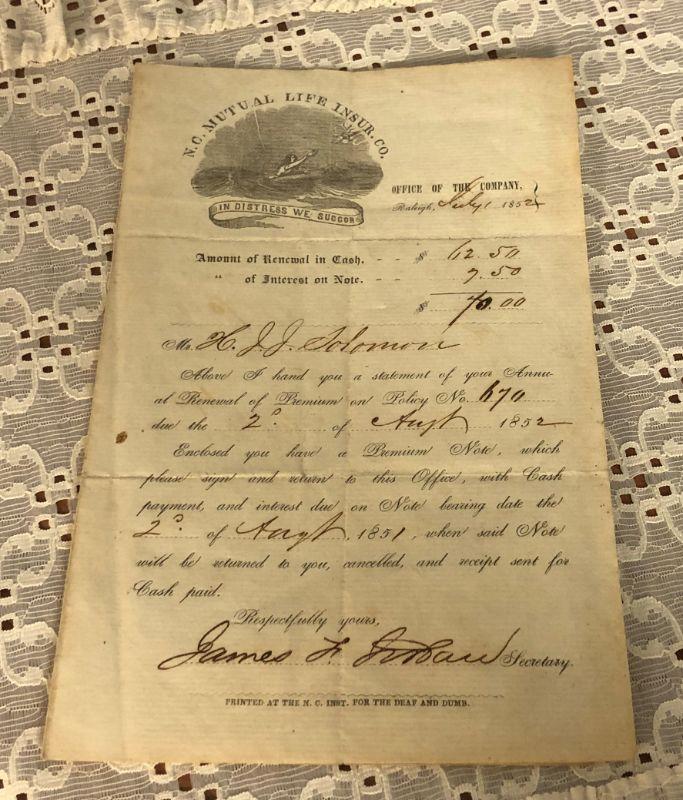 N.C. MUTUAL LIFE INSUR. CO.
IN DISTRESS WE SUCCOR
OFFICE OF THE COMPANY,
Raleigh, July 1 1852
Amount of Renewal in Cash. - - $ 62.50
" of Interest on Note. - - 7.50
$ 70.00
Mr. H. J. J. Solomon
Above I hand you a statement of your Annu-
al Renewal of Premium on Policy No. 670
due the 2d. of Augt 1852
Enclosed you have a Premium Note, which
please sign and return to this Office, with Cash
payment, and interest due on Note bearing date the
2d. of Augt, 1851, when said Note
will be returned to you, cancelled, and receipt sent for
Cash paid.
Respectfully yours,
James F. Secretary.
PRINTED AT THE N. C. INST. FOR THE DEAF AND DUMB.